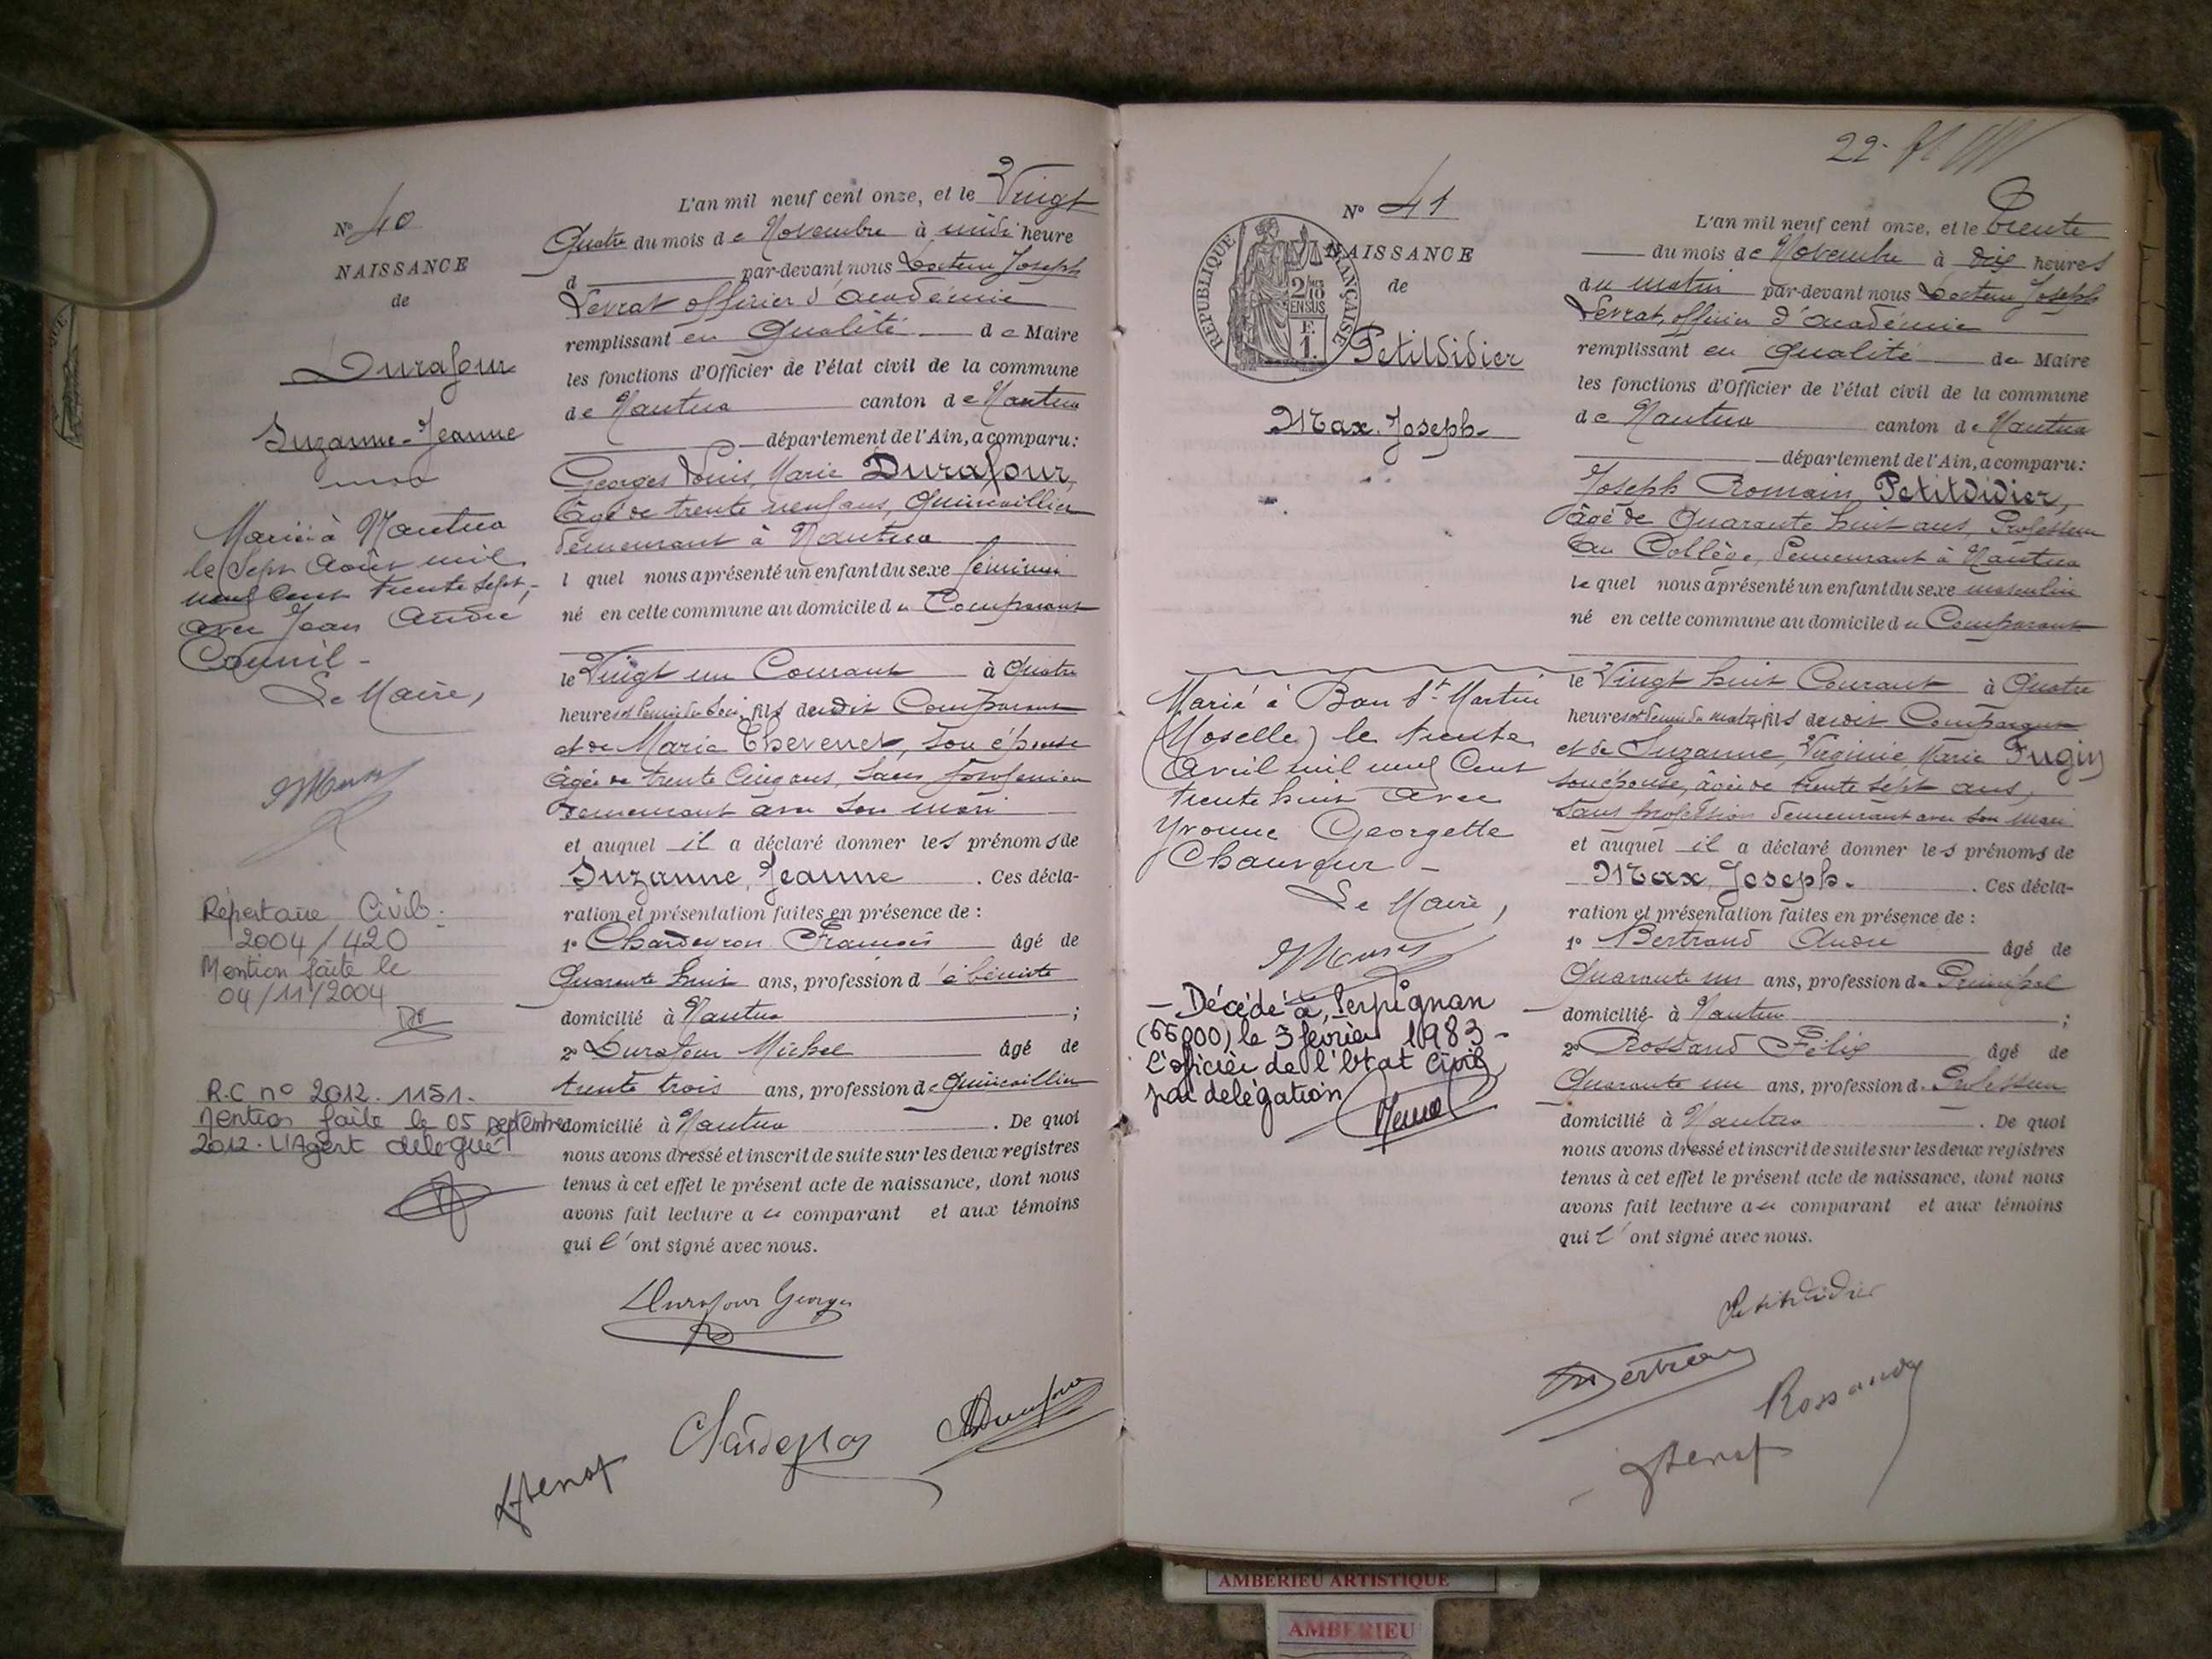 N° 40
NAISSANCE
de
Durafour
Suzanne-Jeanne
Mariée à Nantua
le Sept Août mil
neuf Cent trente Sept,
avec Jean André
Le Maire,
Répertoire Civil
2004/420
Mention faite le
04/11/2004
R.C n° 2012. 1151.
Mention faite le 05 septembre
2012. L'Agent délégué
L'an mil neuf cent onze, et le Vingt
Quatre du mois de Novembre à midi heure
d par-devant nous Docteur Joseph
Levrat officier d'académie
remplissant en Qualité de Maire
les fonctions d'Officier de l'état civil de la commune
de Nantua canton de Nantua
département de l'Ain, a comparu:
Georges Louis, Marie Durafour,
âgé de trente neuf ans, Quincaillier
demeurant à Nantua
l quel nous a présenté un enfant du sexe féminin
né en cette commune au domicile du Comparant
le Vingt un Courant à Quatre
heures et demie du soir, fils dudit Comparant
et de Marie Thevenet, son épouse
âgée de trente Cinq ans, sans profession
demeurant avec son mari
et auquel il a déclaré donner les prénoms de
Suzanne, Jeanne . Ces décla-
ration et présentation faites en présence de :
1° Chardeyron François âgé de
Quarante huit ans, profession d'ébéniste
domicilié à Nantua ;
2° Durafour Michel âgé de
trente trois ans, profession de Quincaillier
domicilié à Nantua . De quoi
nous avons dressé et inscrit de suite sur les deux registres
tenus à cet effet le présent acte de naissance, dont nous
avons fait lecture au comparant et aux témoins
qui l'ont signé avec nous.
Durafour Georges
Chardeyron
22
N° 41
NAISSANCE
de
REPUBLIQUE FRANÇAISE
2/10
EN SUS
F.
1.
Petitdidier
Max. Joseph.
Marié à Ban St Martin
(Moselle) le trente
Avril mil neuf Cent
trente huit avec
Yvonne Georgette
Chauveur
Le Maire,
Décédé à Perpignan
(66000) le 3 février 1983
L'officier de l'Etat Civil
par délégation
L'an mil neuf cent onze, et le trente
du mois de Novembre à dix heures
du matin par-devant nous Docteur Joseph
Levrat, officier d'académie
remplissant en Qualité de Maire
les fonctions d'Officier de l'état civil de la commune
de Nantua canton de Nantua
département de l'Ain, a comparu:
Joseph Romain, Petitdidier,
âgé de Quarante huit ans, Professeur
au Collège, demeurant à Nantua
lequel nous a présenté un enfant du sexe masculin
né en cette commune au domicile du Comparant
le Vingt huit Courant à Quatre
heures et demie du matin, fils dudit Comparant
et de Suzanne, Virginie, Marie Pugin
son épouse, âgée de trente sept ans,
sans profession demeurant avec son mari
et auquel il a déclaré donner les prénoms de
Max, Joseph. . Ces décla-
ration et présentation faites en présence de :
1° Bertrand André âgé de
Quarante un ans, profession de Principal
domicilié à Nantua ;
2° Rossand Félix âgé de
Quarante un ans, profession d. Professeur
domicilié à Nantua . De quoi
nous avons dressé et inscrit de suite sur les deux registres
tenus à cet effet le présent acte de naissance, dont nous
avons fait lecture au comparant et aux témoins
qui l'ont signé avec nous.
Petitdidier
Bertrand
Rossand
AMBERIEU ARTISTIQUE
AMBERIEU